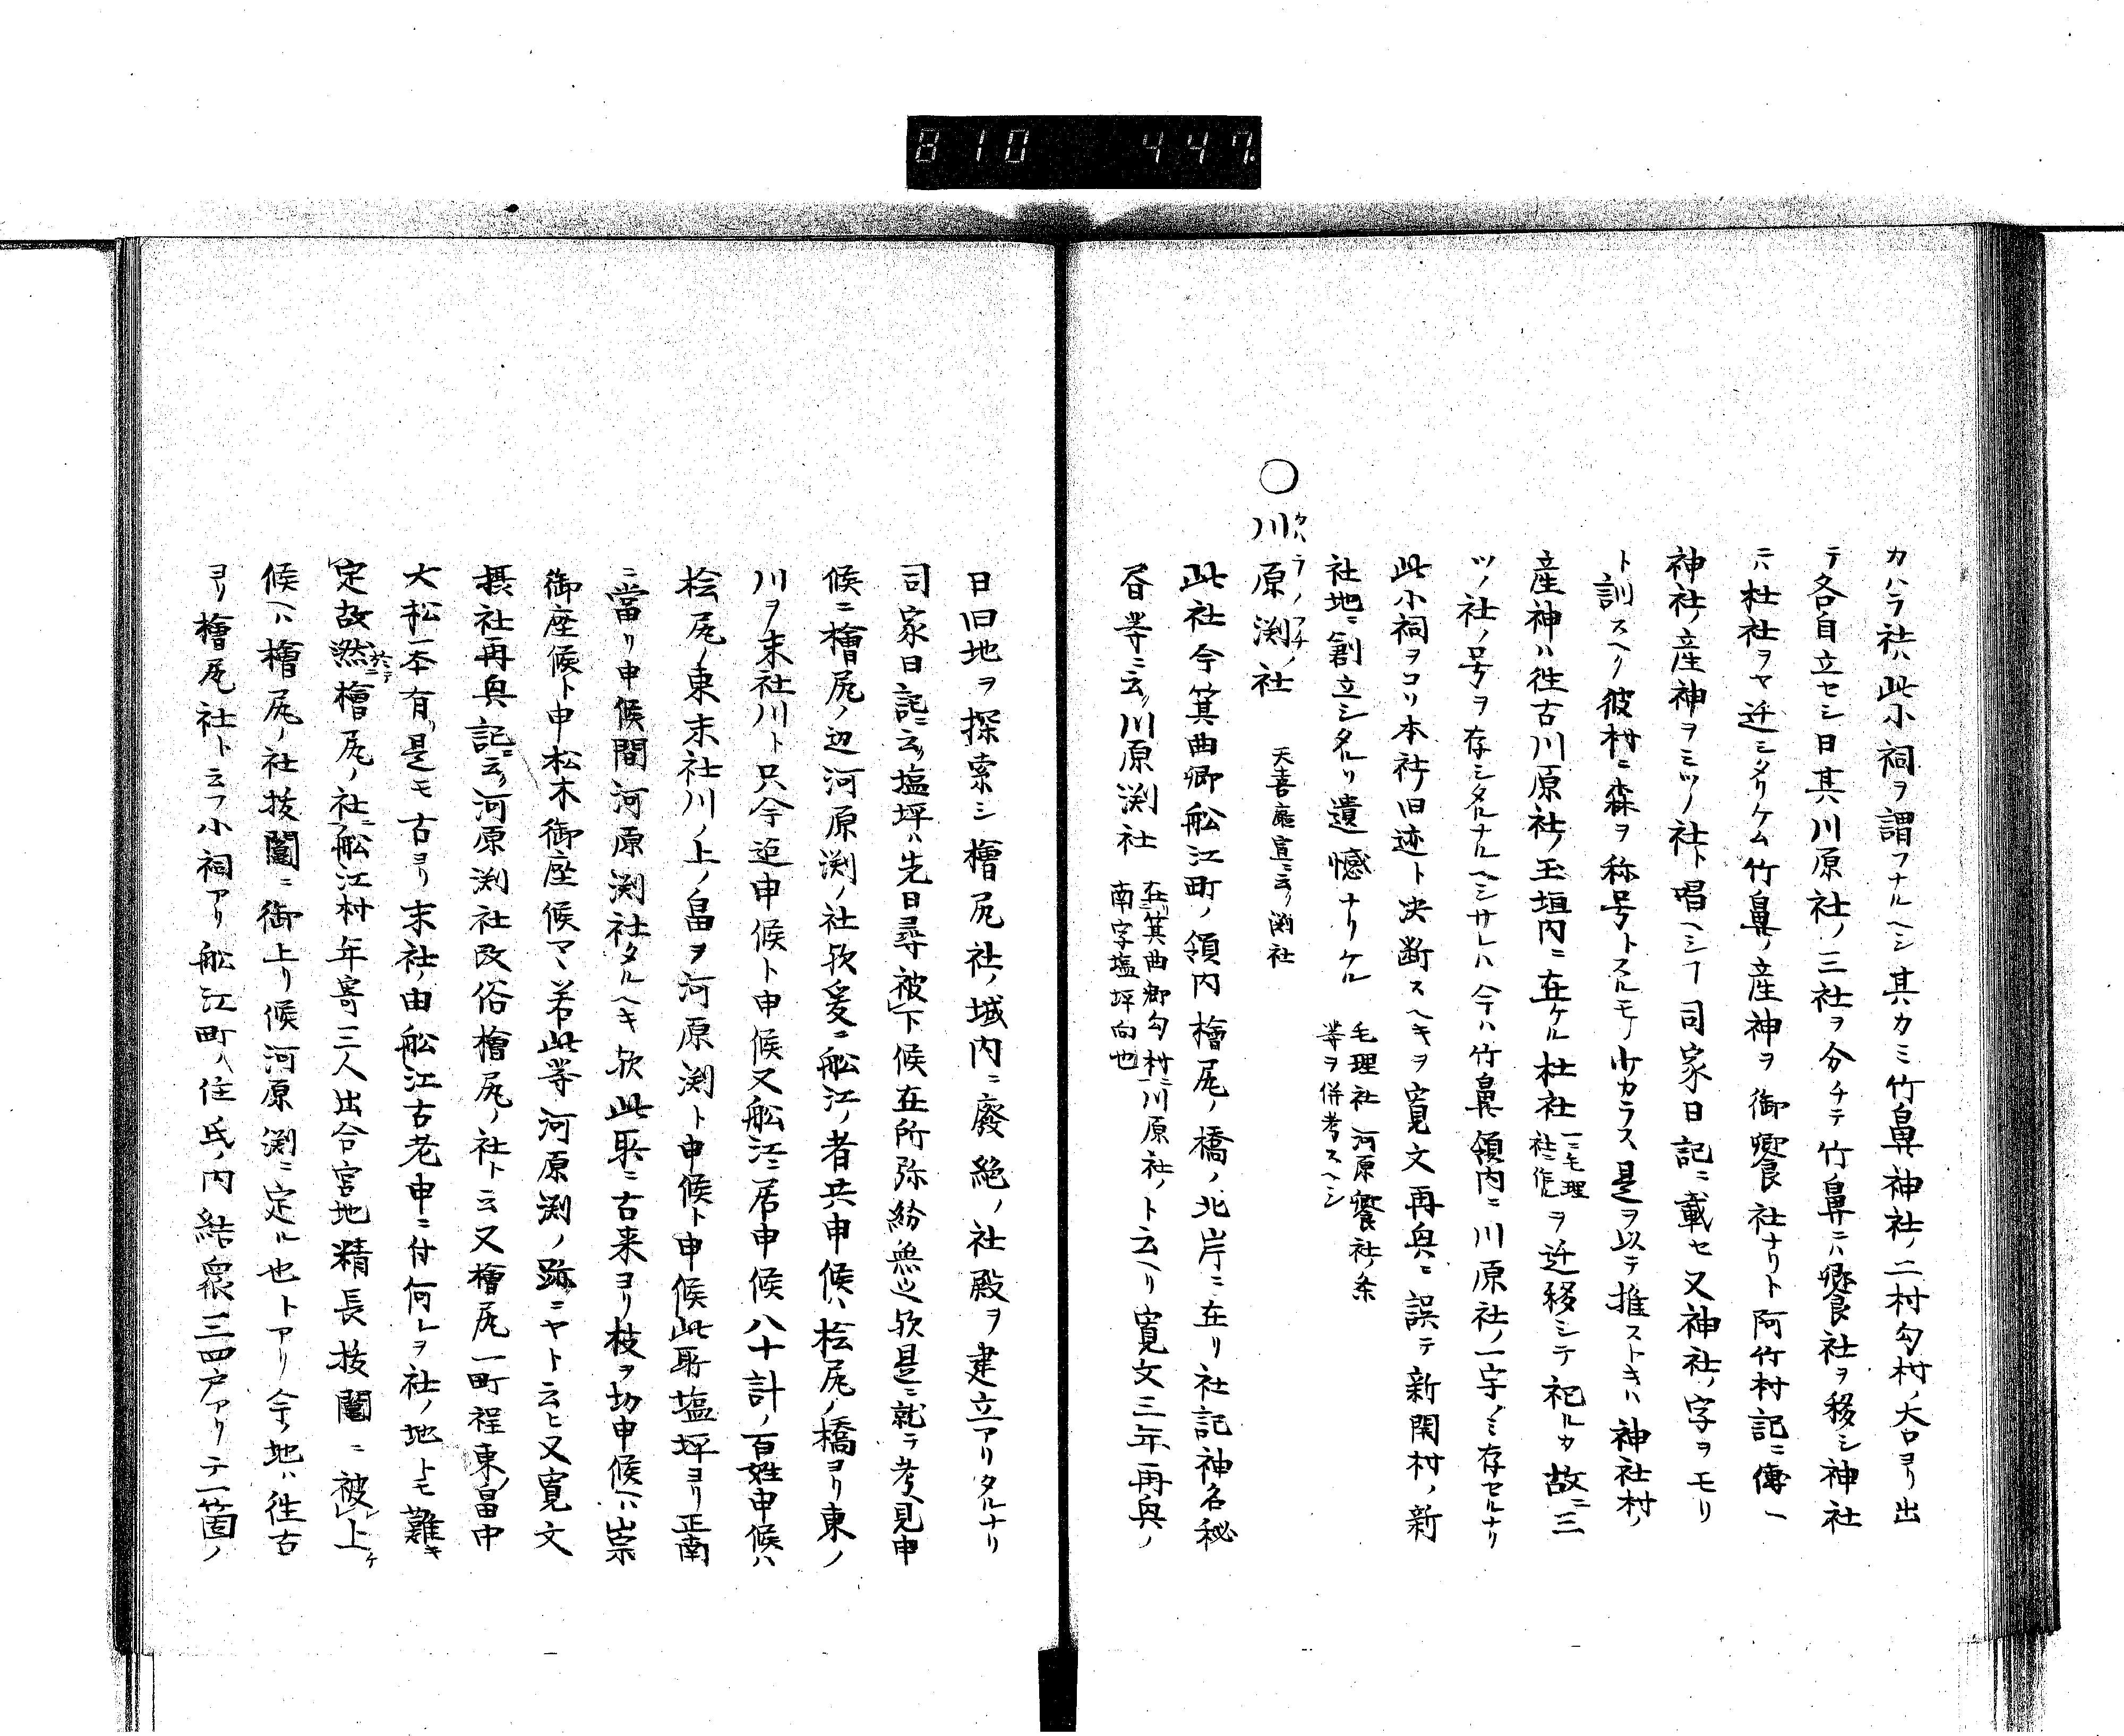 810 447
カハラ社ハ此小祠ヲ謂フナルヘシ其カミ竹鼻神社ノ二村勾村ノ大口ヨリ出
テ各自立セシ日其川原社ノ三社ヲ分チテ竹鼻ニハ饗社ヲ移シ神社
ニハ杜社ヲヤ迁シタリケム竹鼻ノ産神ヲ御饗社ナリト阿竹村記ニ傳ヘ
神社ノ産神ヲミツノ社ト唱ヘシ司家日記ニ載セ又神社ノ字ヲモリ
ト訓スヘク彼村ニ森ヲ称号トスルモノ少カラス是ヲ以テ推ストキハ神社村ノ
産神ハ徃古川原社ノ玉垣内ニ在ケル杜社一ニ毛理社ニ作ルヲ迁移シテ祀ルカ故ニ三
ツノ社ノ号ヲ存シタルナルヘシサレハ今ハ竹鼻領内ニ川原社ノ一宇ノミ存セルナリ
此小祠ヲコソ本社ノ旧迹ト决断スヘキヲ寛文再興ニ誤テ新関村ノ新
社地ニ創立シタルソ遺憾ナリケル 毛理社河原饗社ノ条等ヲ併考スヘシ
○川原渕社 カハラノフチノ 天喜廳宣ニ云ク渕社
此社今箕曲郷舩江町ノ領内檜尻ノ橋ノ北岸ニ在リ社記神名秘
書等ニ云ク川原渕社 在箕曲郷勾村ニ川原社ノ南字塩坪向也 ト云ヘリ寛文三年再興ノ
日旧地ヲ探索シ檜尻社ノ域内ニ廢絶ノ社殿ヲ建立アリタルナリ
司家日記ニ云ク塩坪ハ先日尋被下候在所弥紛無之欤是ニ就テ考見申
候ニ檜尻ノ辺河原渕ノ社欤爰ニ舩江ノ者共申候ハ桧尻ノ橋ヨリ東ノ
川ヲ末社川ト只今迄申候ト申候又舩江ニ居申候八十計ノ百姓申候ハ
桧尻ノ東末社川ノ上ノ畠ヲ河原渕ト申候ト申候此所塩坪ヨリ正南
ニ當リ申候間河原渕社タルヘキ欤此所ニ古来ヨリ枝ヲ切申候ヘハ崇
御座候ト申松木御座候マヽ若此等河原渕ノ跡ニヤト云ヒ又寛文
摂社再興記ニ云ク河原渕社改俗檜尻ノ社ト云又檜尻一町程東ノ畠中
大松一本有リ是モ古ヨリ末社ノ由舩江古老申ニ付何レヲ社ノ地トモ難キ
定故然檜尻ノ社ニ舩江村年寄三人出合宮地精長抜鬮ニ被上ケ
候ヘハ檜尻ノ社抜鬮ニ御上リ候河原渕ニ定ル也トアリ今ノ地ハ徃古
ヨリ檜尻社ト云フ小祠アリ舩江町ノ住氏ノ内結衆三四戸アリテ一箇ノ